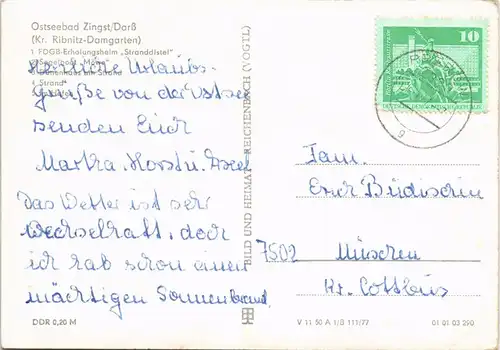 Ostseebad Zingst/Darß
(Kr. Ribnitz-Damgarten)
1. FDGB-Erholungsheim „Stranddistel"
2. Segelboot „Möwe"
3. Dünenhaus am Strand
4. Strand
Herzliche Urlaubs-
grüße von der Ostsee
senden Euch
Martha, Horst u. Axel
Das Wetter ist sehr
wechselhaft, doch
ich hab schon einen
mächtigen Sonnenbrand
DDR 0,20 M
BILD UND HEIMAT REICHENBACH (VOGTL)
V 11 50 A 1/B 111/77
01 01 03 290
10
DEUTSCHE DEMOKRATISCHE REPUBLIK
Fam.
Erich
7502 München
Kr. Cottbus